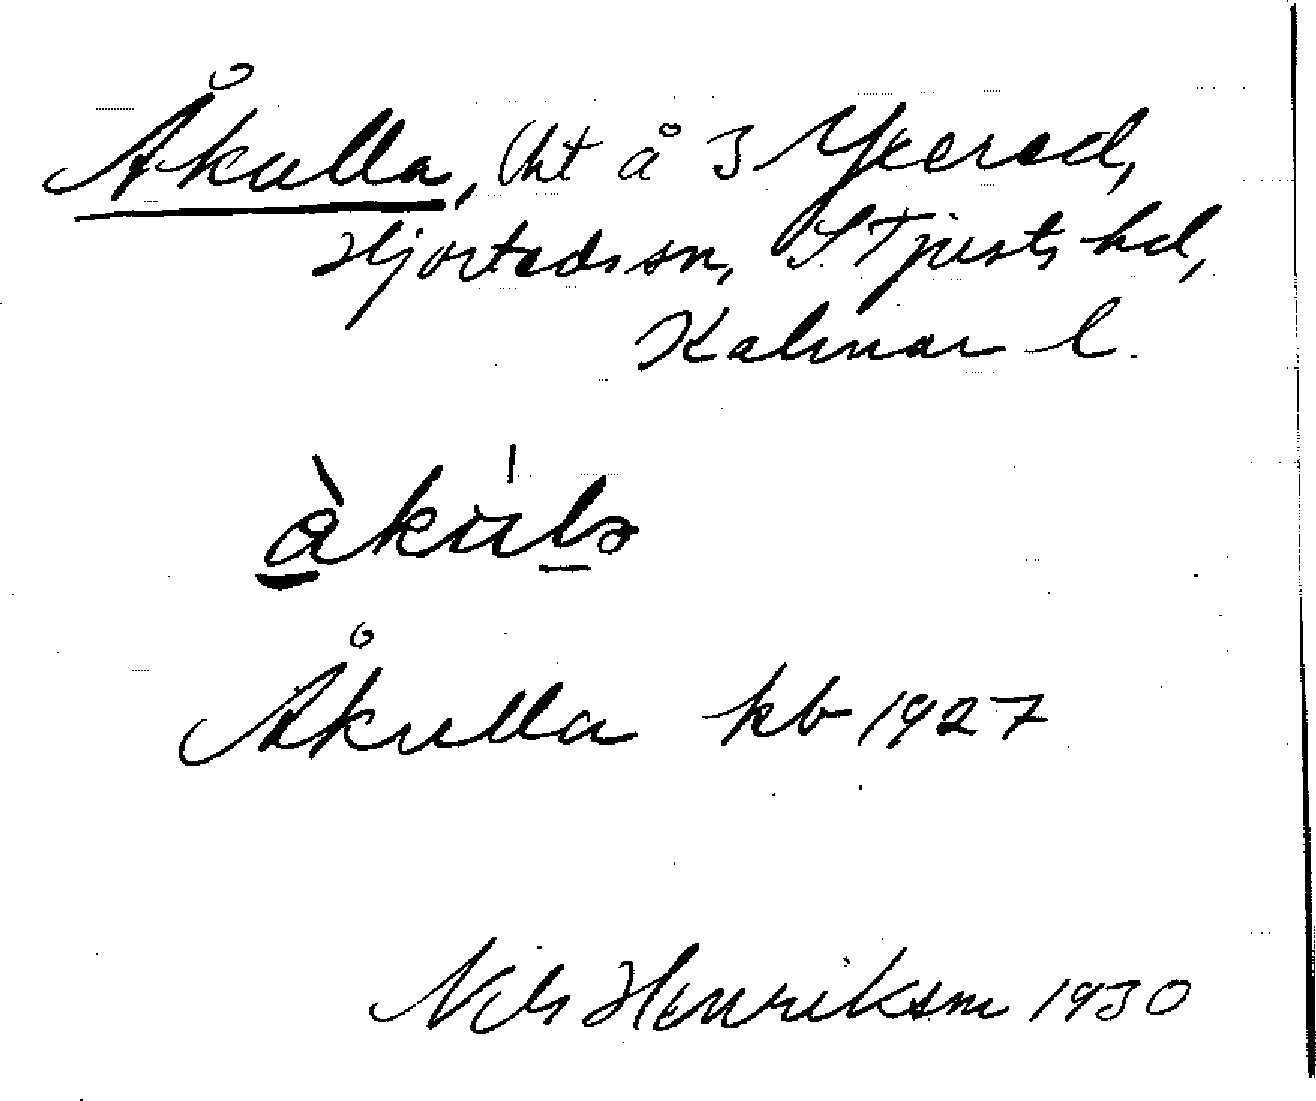 Åkulla, lht å 3 Yxered,
Hjorteds sn, S. Tjusts hd,
Kalmar l.
àkùla
Åkulla kb 1927
Nils Henriksson 1930